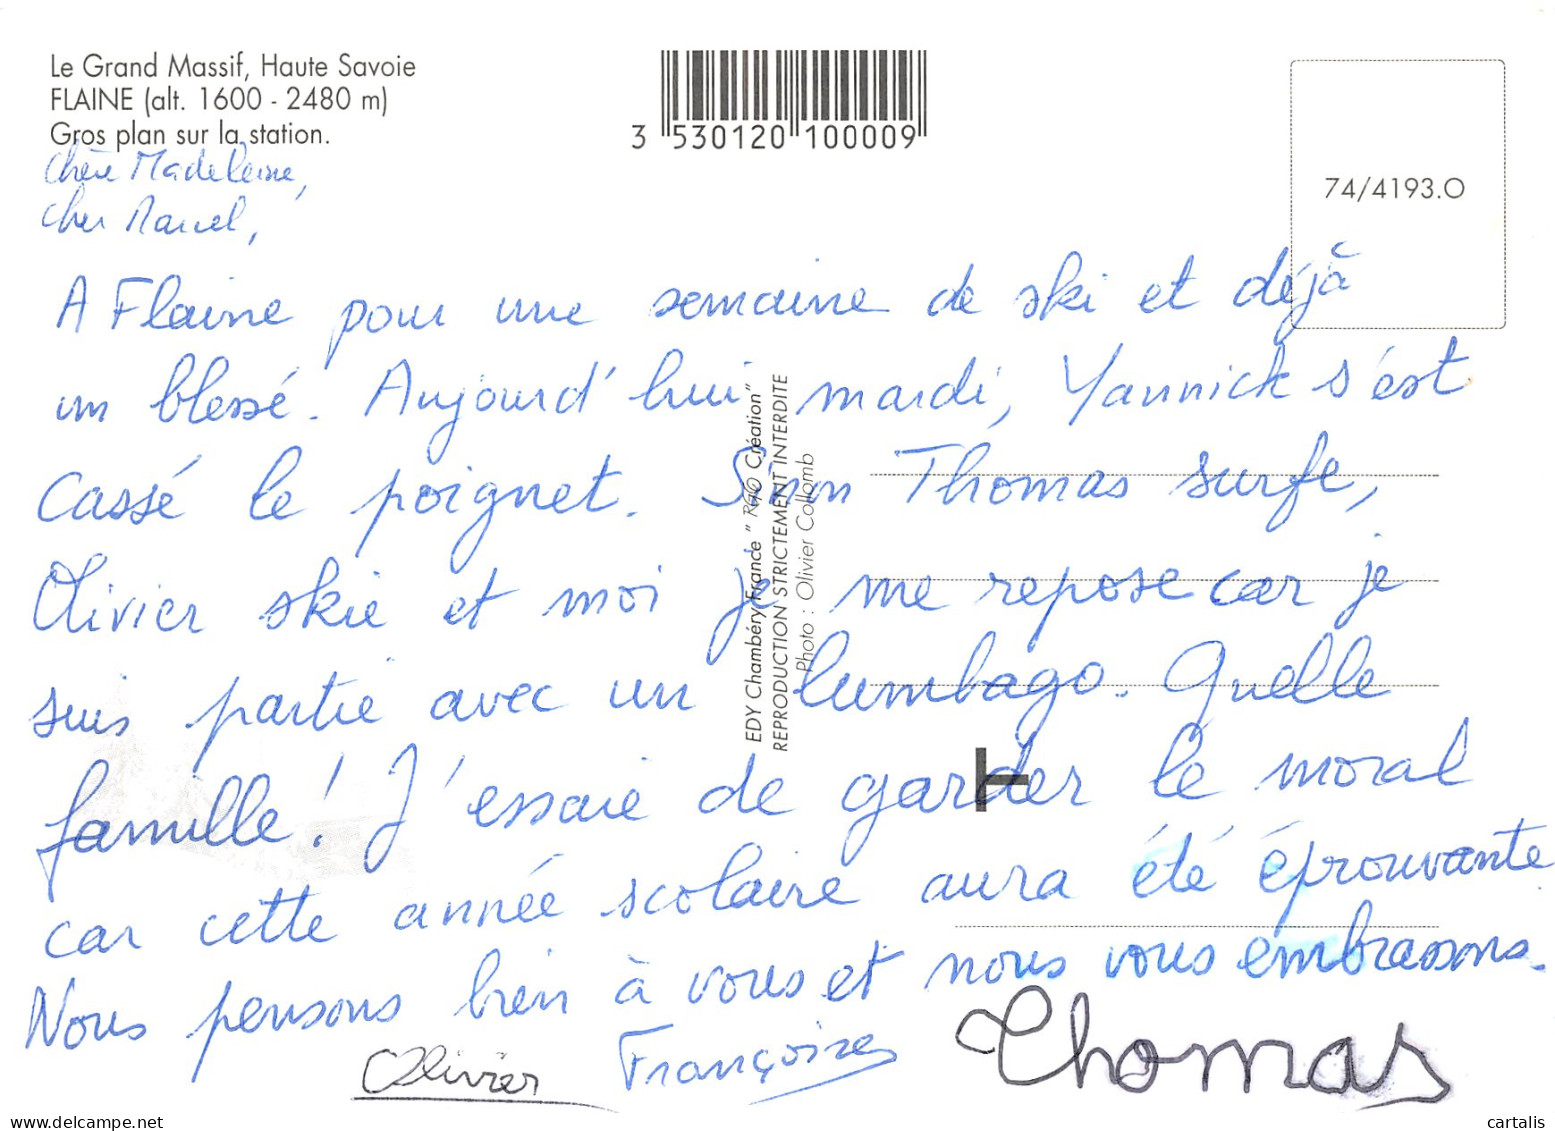 Le Grand Massif, Haute Savoie
FLAINE (alt. 1600 - 2480 m)
Gros plan sur la station.
3 530120 100009
74/4193.O
Chère Madeleine,
Cher Marcel,
A Flaine pour une semaine de ski et déjà
un blessé. Aujourd'hui mardi, Yannick s'est
cassé le poignet. Sinon Thomas surfe,
Olivier skie et moi je me repose car je
suis partie avec un lumbago. Quelle
famille ! J'essaie de garder le moral
car cette année scolaire aura été éprouvante
Nous pensons bien à vous et nous vous embrassons.
Olivier Françoise Thomas
EDY Chambéry France " Création"
REPRODUCTION STRICTEMENT INTERDITE
Photo : Olivier Collomb
www.delcampe.net
cartalis